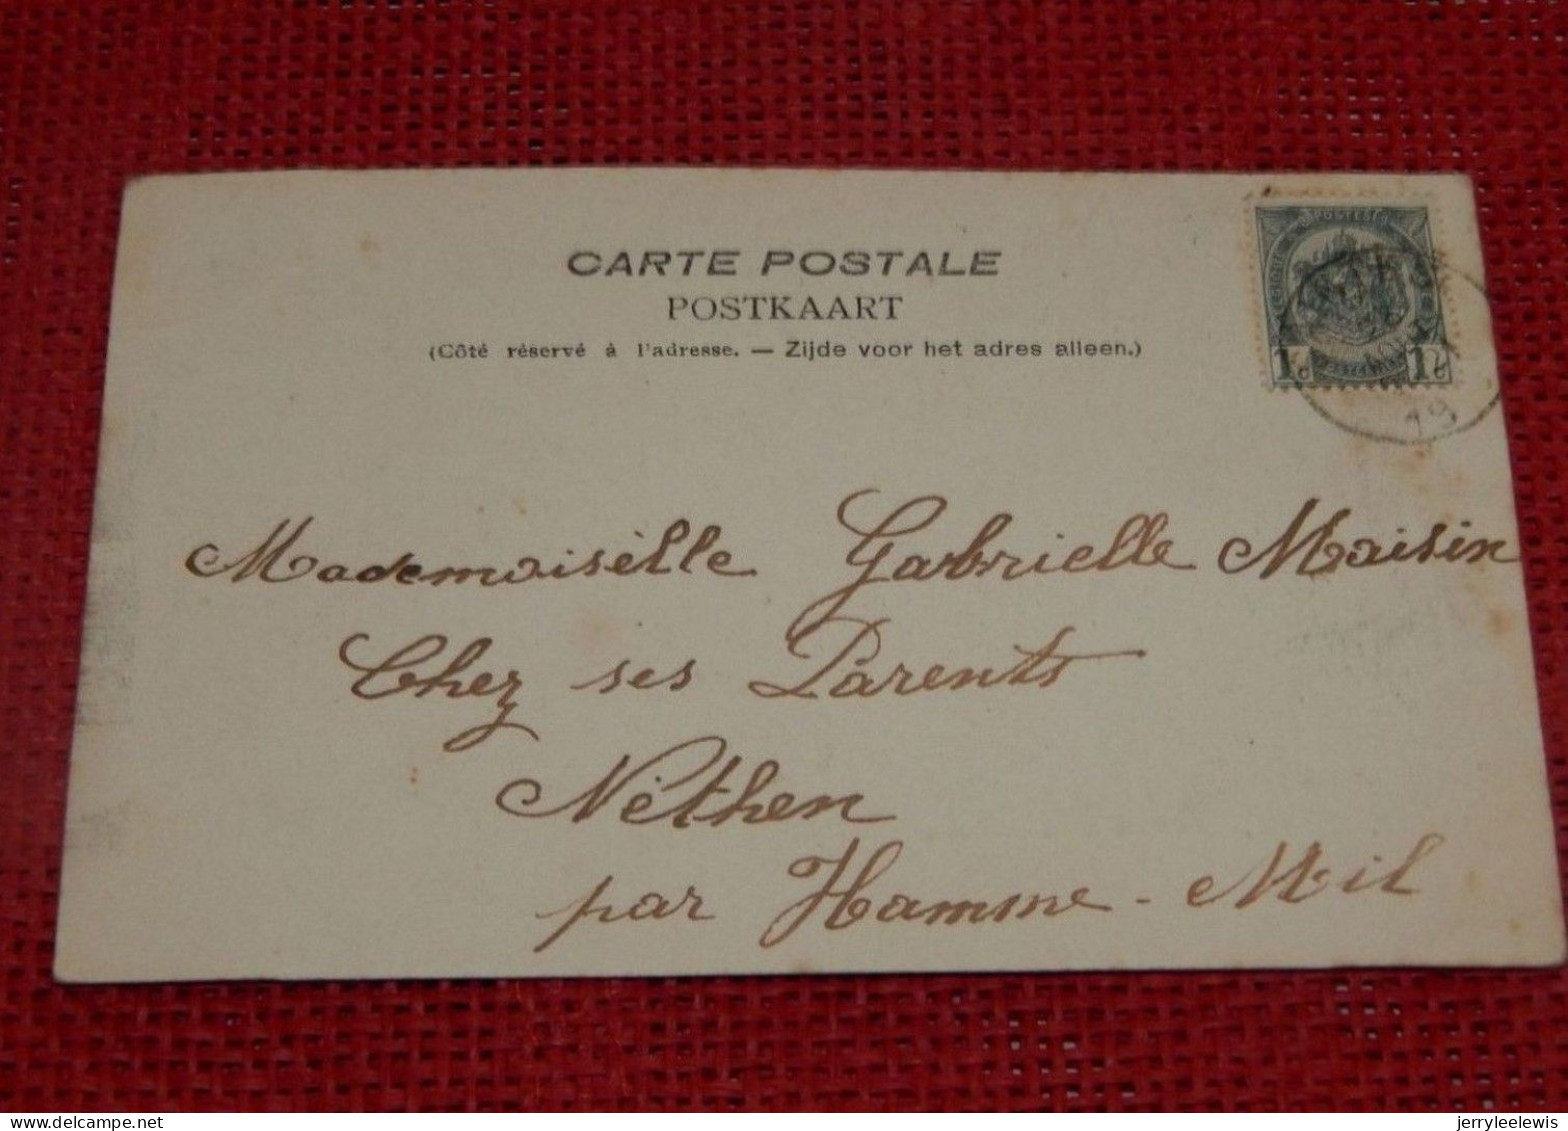 CARTE POSTALE
POSTKAART
(Côté réservé à l'adresse. — Zijde voor het adres alleen.)
1 1
19
Mademoisèlle Gabrielle Maisin
Chez ses Parents
Néthen
par Hamme-Mil
www.delcampe.net
jerryleelewis